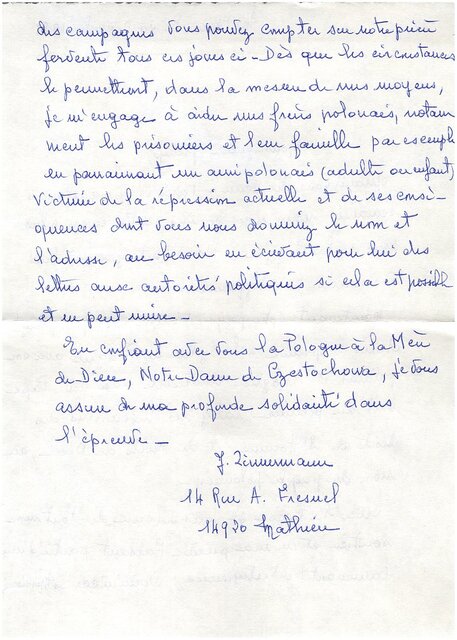 des campagnes vous pouvez compter sur notre prière
fervente tous ces jours ci - Dès que les circonstances
le permettront, dans la mesure de mes moyens,
je m'engage à aider mes frères polonais, notam
ment les prisonniers et leur famille par exemple
en parrainant un ami polonais (adulte ou enfant)
victime de la répression actuelle et de ses consé-
quences dont vous nous donnerez le nom et
l'adresse, au besoin en écrivant pour lui des
lettres aux autorités politiques si cela est possible
et ne peut nuire -
En confiant avec vous la Pologne à la Mère
de Dieu, Notre Dame de Czestochowa, je vous
assure de ma profonde solidarité dans
l'épreuve -
J. Zimmermann
14 Rue A. Fresnel
14920 Mathieu